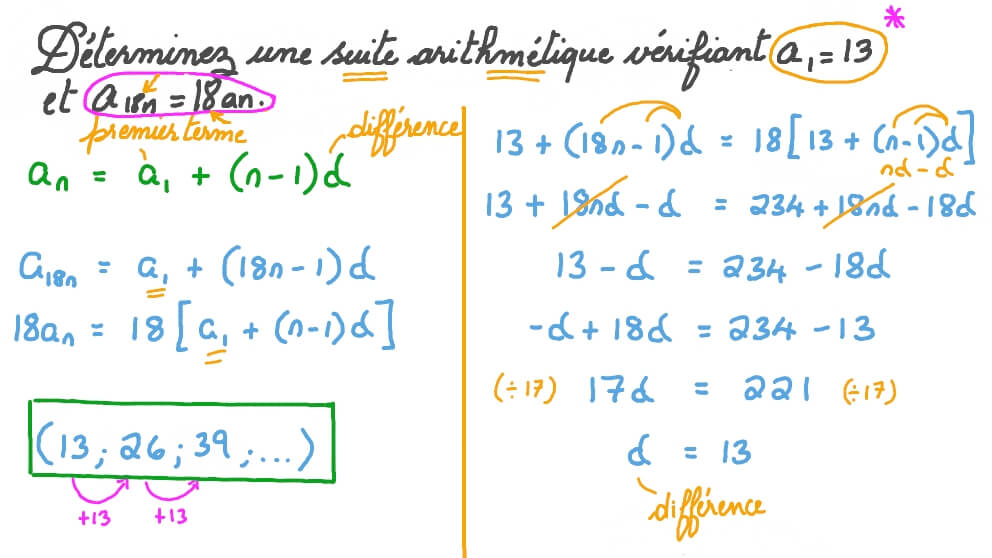 Déterminez une suite arithmétique vérifiant a₁ = 13 *
et a₁₈ₙ = 18aₙ.
premier terme
différence
aₙ = a₁ + (n-1)d
a₁₈ₙ = a₁ + (18n-1)d
18aₙ = 18[a₁ + (n-1)d]
(13 ; 26 ; 39 ; ...)
+13 +13
13 + (18n-1)d = 18[13 + (n-1)d]
nd - d
13 + 18nd - d = 234 + 18nd - 18d
13 - d = 234 - 18d
-d + 18d = 234 - 13
(÷17) 17d = 221 (÷17)
d = 13
différence